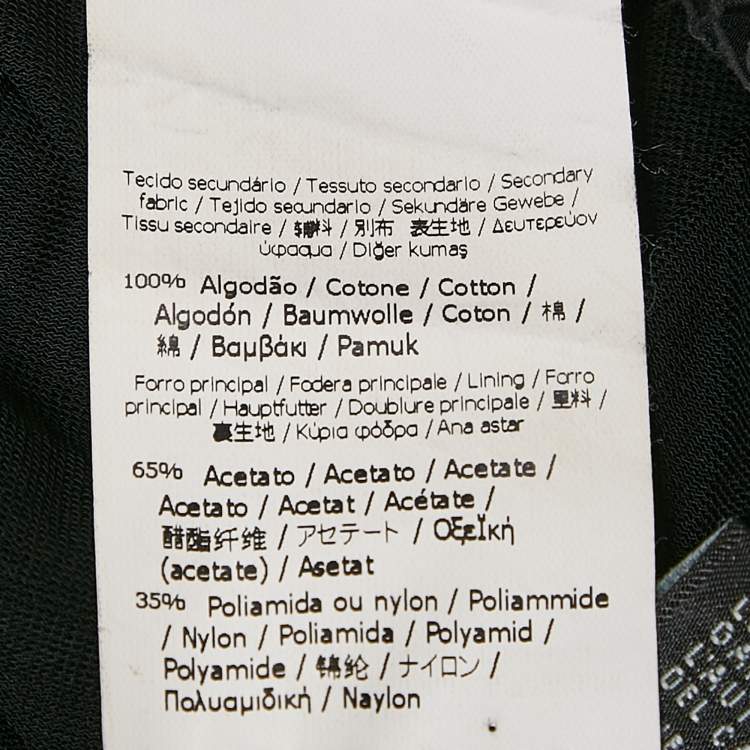 Tecido secundário / Tessuto secondario / Secondary
fabric / Tejido secundario / Sekundäre Gewebe /
Tissu secondaire / 辅料 / 別布 表生地 / Δευτερεύον
ύφασμα / Diğer kumaş
100% Algodão / Cotone / Cotton /
Algodón / Baumwolle / Coton / 棉 /
綿 / Βαμβάκι / Pamuk
Forro principal / Fodera principale / Lining / Forro
principal / Hauptfutter / Doublure principale / 里料 /
裏生地 / Κύρια φόδρα / Ana astar
65% Acetato / Acetato / Acetate /
Acetato / Acetat / Acétate /
醋酯纤维 / アセテート / Οξεϊκή
(acetate) / Asetat
35% Poliamida ou nylon / Poliammide
/ Nylon / Poliamida / Polyamid /
Polyamide / 锦纶 / ナイロン /
Πολυαμιδική / Naylon